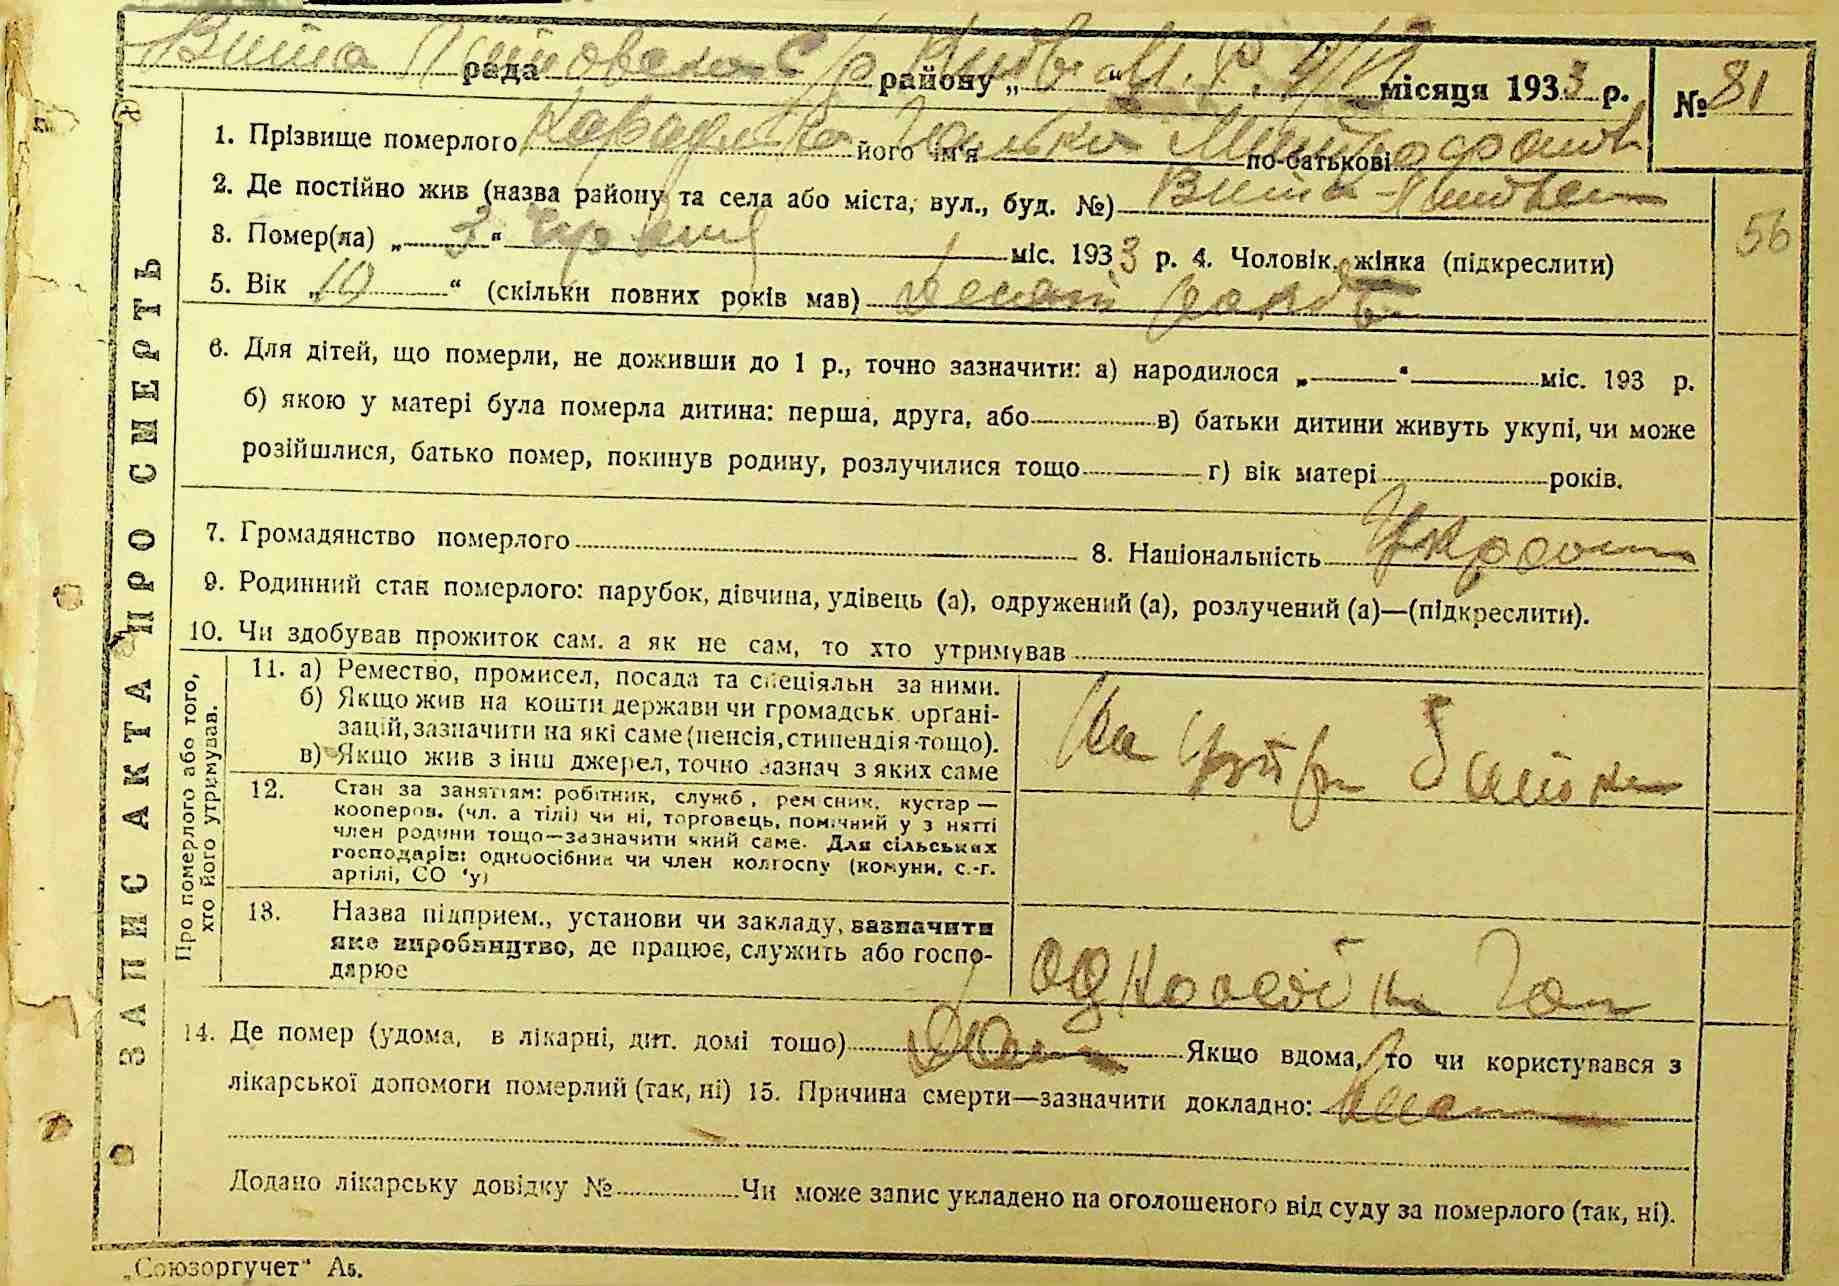 Вита Поштовська с/р рада району „ “ місяця 1933 р. № 81
1. Прізвище померлого його ім'я Ганька по-батькові Митрофанов
2. Де постійно жив (назва району та села або міста, вул., буд. №) Вита-Поштов
3. Помер(ла) „ 3 “ червня міс. 1933 р. 4. Чоловік, жінка (підкреслити)
56
5. Вік „ 10 “ (скільки повних років мав) десять
6. Для дітей, що померли, не доживши до 1 р., точно зазначити: а) народилося „ “ міс. 193 р.
б) якою у матері була померла дитина: перша, друга, або в) батьки дитини живуть укупі, чи може
розійшлися, батько помер, покинув родину, розлучилися тощо г) вік матері років.
7. Громадянство померлого 8. Національність
9. Родинний стан померлого: парубок, дівчина, удівець (а), одружений (а), розлучений (а)—(підкреслити).
10. Чи здобував прожиток сам. а як не сам, то хто утримував
ЗАПИС АКТА ПРО СМЕРТЬ
Про померлого або того,
хто його утримував.
11. а) Ремество, промисел, посада та спеціяльн за ними.
б) Якщо жив на кошти держави чи громадськ. орґані-
зацій, зазначити на які саме (пенсія, стипендія тощо).
в) Якщо жив з інш джерел, точно зазнач з яких саме
На батьки
12. Стан за заняттям: робітник, служб, рем сник, кустар —
кооперов. (чл. а тілі) чи ні, торговець, помічний у з нятті
член родини тощо—зазначити який саме. Для сільських
господарів: одноосібник чи член колгоспу (комуни, с.-г.
артілі, СО 'у)
13. Назва підприєм., установи чи закладу, зазначити
яке виробництво, де працює, служить або госпо-
дарює
14. Де помер (удома, в лікарні, дит. домі тощо) Якщо вдома, то чи користувався з
лікарської допомоги померлий (так, ні) 15. Причина смерти—зазначити докладно:
Додано лікарську довідку № Чи може запис укладено на оголошеного від суду за померлого (так, ні).
„Союзоргучет“ А5.